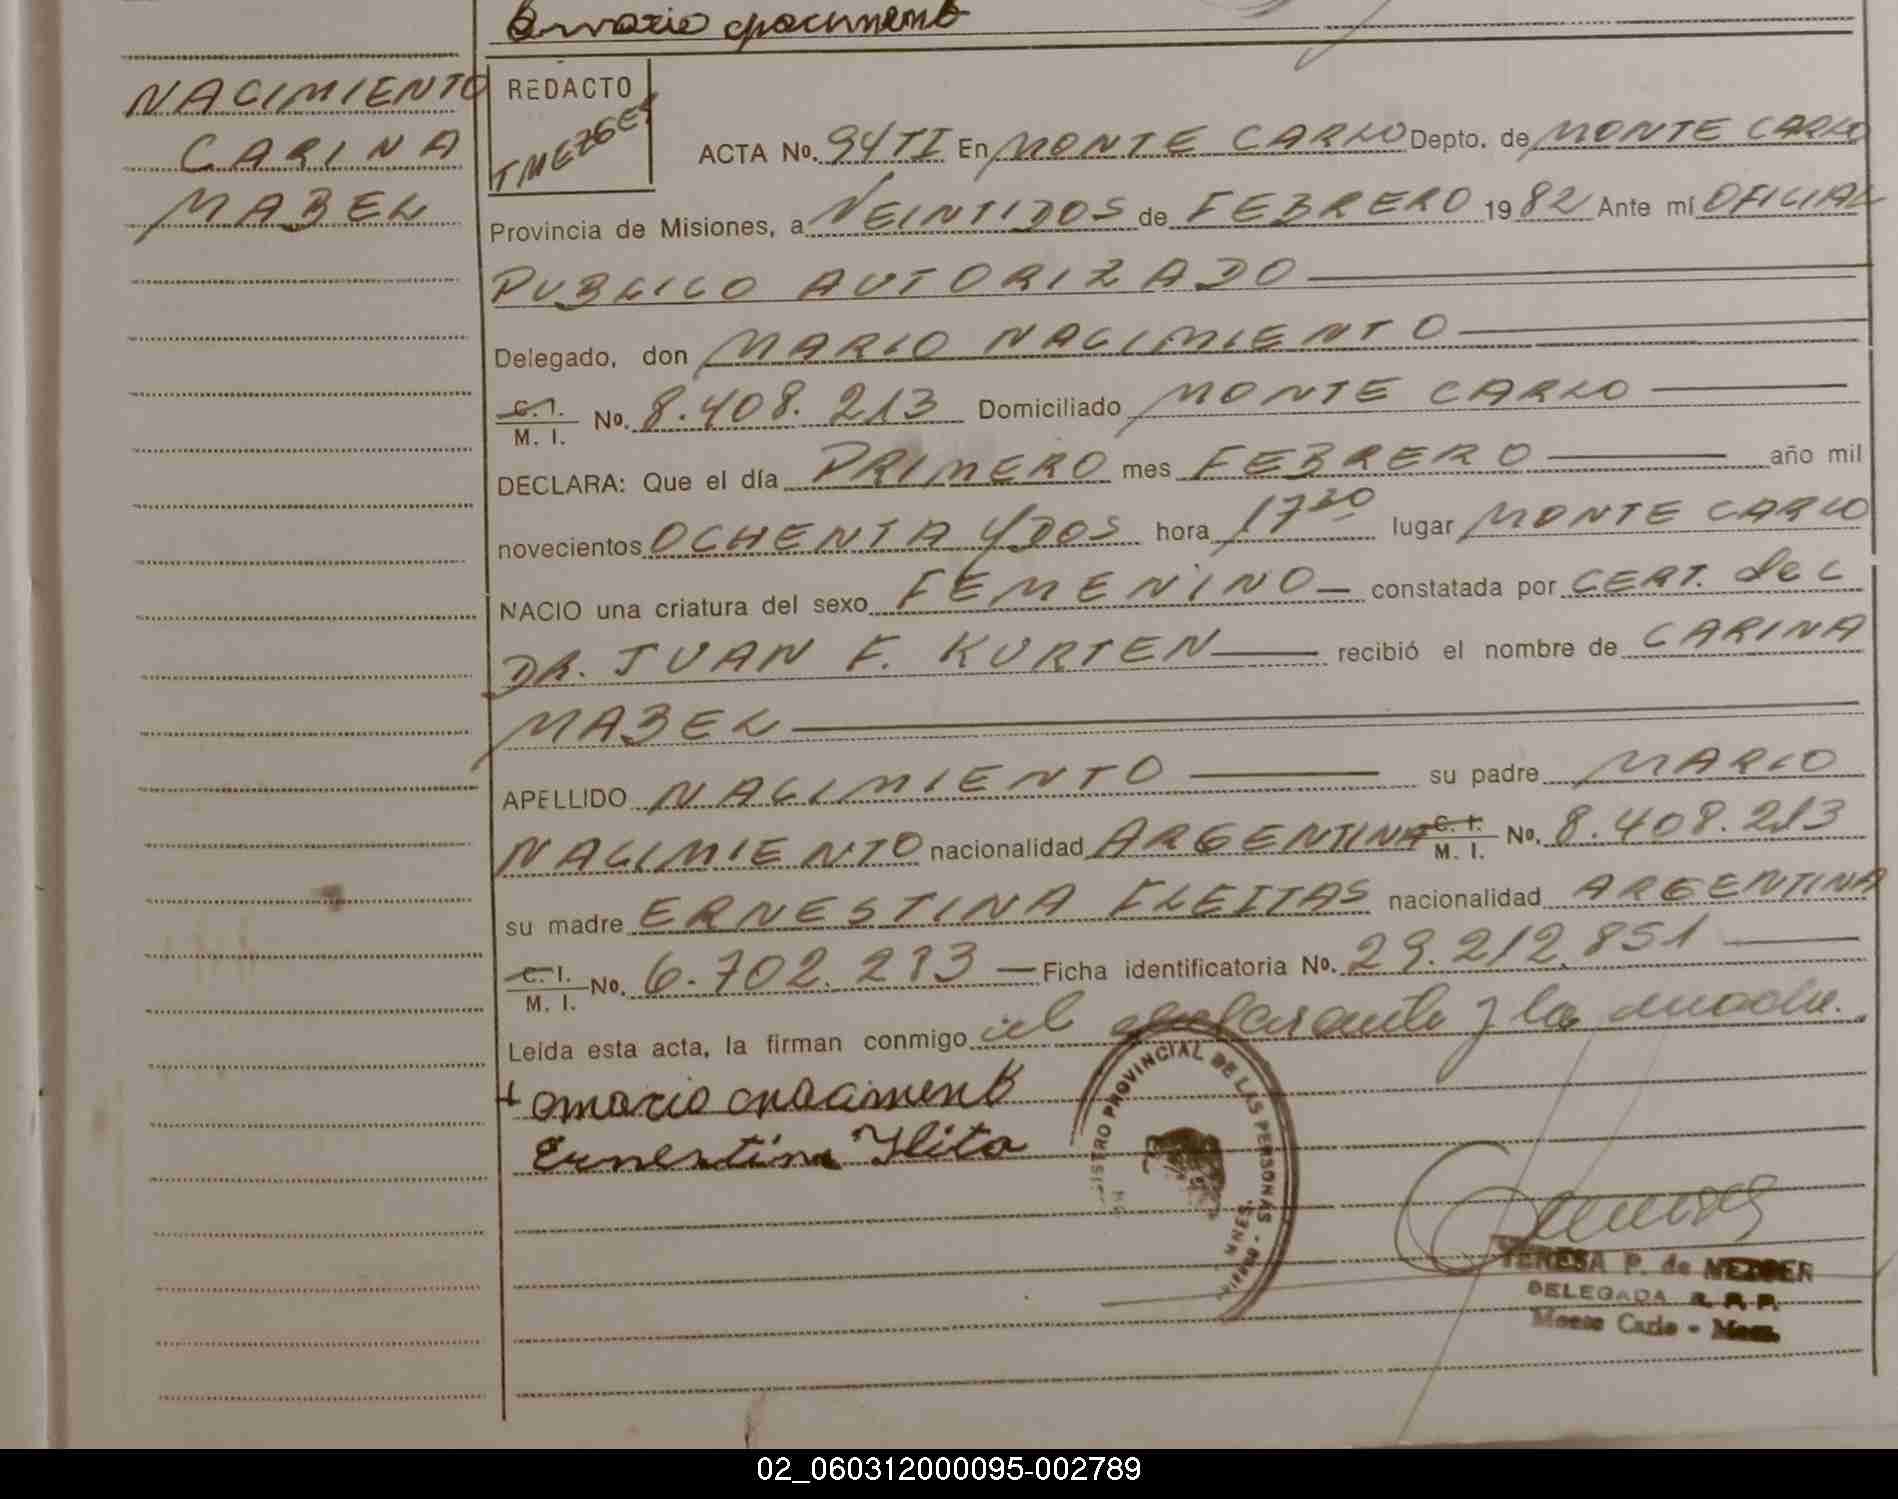 NACIMIENTO
CARINA
MABEL
REDACTO
ACTA No. 94TI En MONTE CARLO Depto. de MONTE CARLO
Provincia de Misiones, a VEINTIDOS de FEBRERO 1982 Ante mí OFICIAL
PUBLICO AUTORIZADO
Delegado, don MARIO NACIMIENTO
C.I. M. I. No. 8.408.213 Domiciliado MONTE CARLO
DECLARA: Que el día PRIMERO mes FEBRERO año mil
novecientos OCHENTA Y DOS hora 17 30 lugar MONTE CARLO
NACIO una criatura del sexo FEMENINO constatada por CERT. del
DR. JUAN F. KURTEN recibió el nombre de CARINA
MABEL
APELLIDO NACIMIENTO su padre MARIO
NACIMIENTO nacionalidad ARGENTINA C.I. M. I. No. 8.408.213
su madre ERNESTINA FLEITAS nacionalidad ARGENTINA
C.I. M. I. No. 6.702.293 Ficha identificatoria No. 29.212.851
Leída esta acta, la firman conmigo el declarante y la madre.
Ernestina
REGISTRO PROVINCIAL DE LAS PERSONAS
TERESA P. de MEZGER
DELEGADA R. P. P.
Monte Carlo - Mnes.
02_060312000095-002789